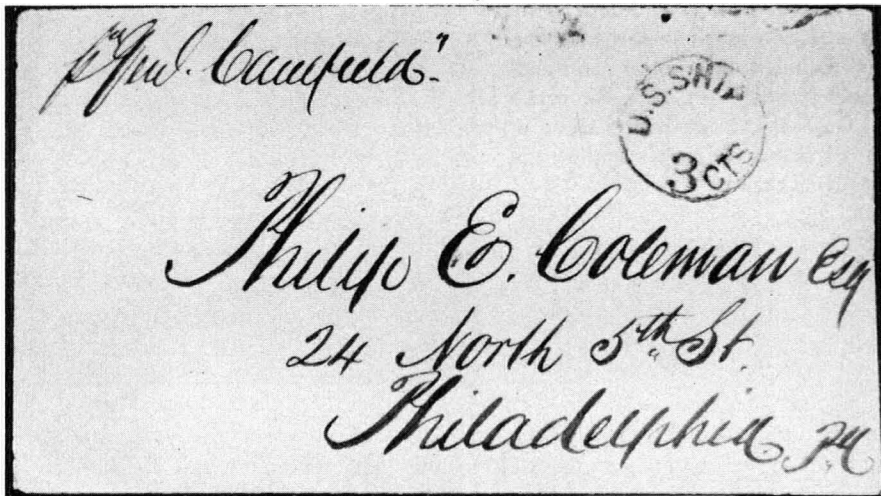 U.S. SHIP
3 CTS
Philip E. Coleman Esq
24 North 5th St.
Philadelphia Pa